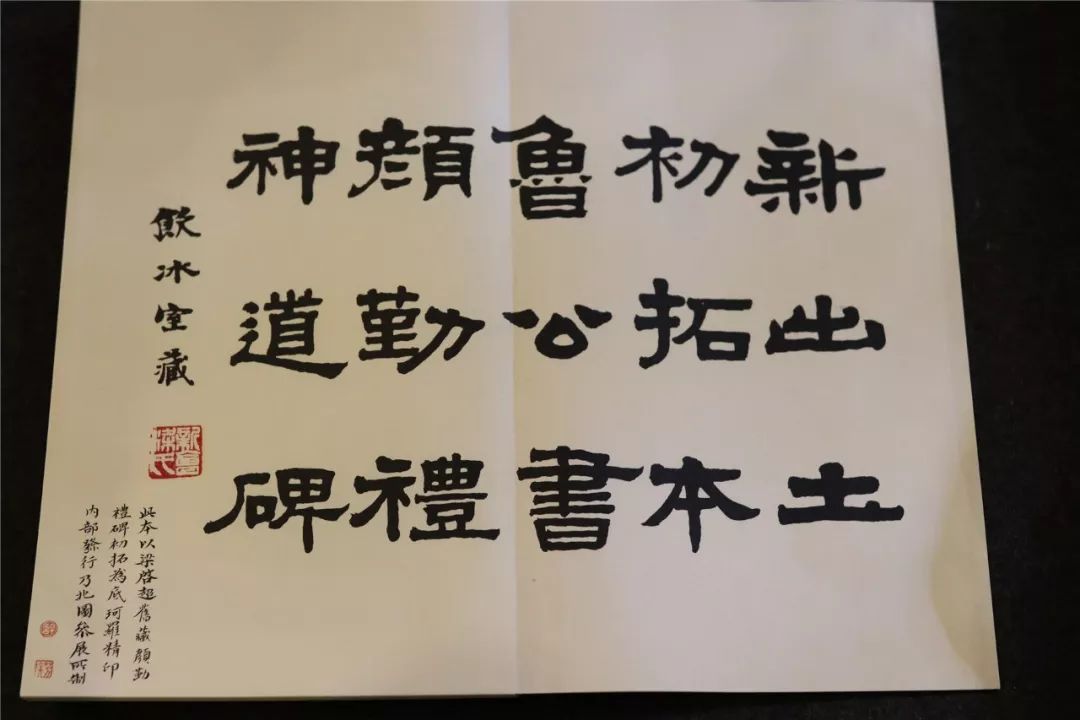 新出土
初拓本
魯公書
顏勤禮
神道碑
飲冰室藏
新會梁氏
此本以梁啓超舊藏顏勤
禮碑初拓為底珂羅精印
內部發行乃北圖參展所製